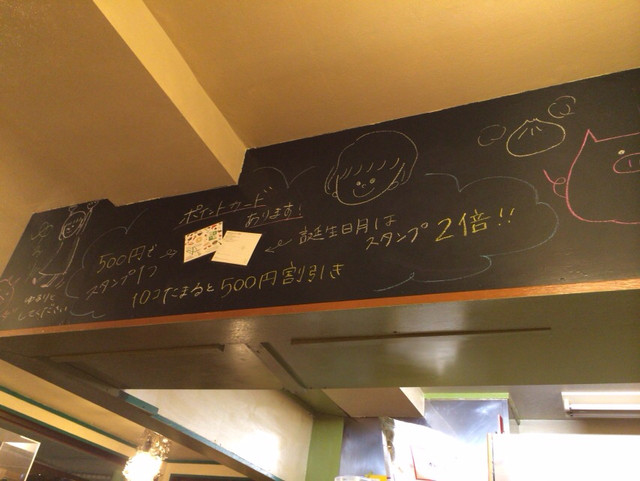 ポイントカード
あります!
500円で
スタンプ1つ
誕生日月は
スタンプ2倍!!
10コたまると500円割引き
ゆるりと
してください